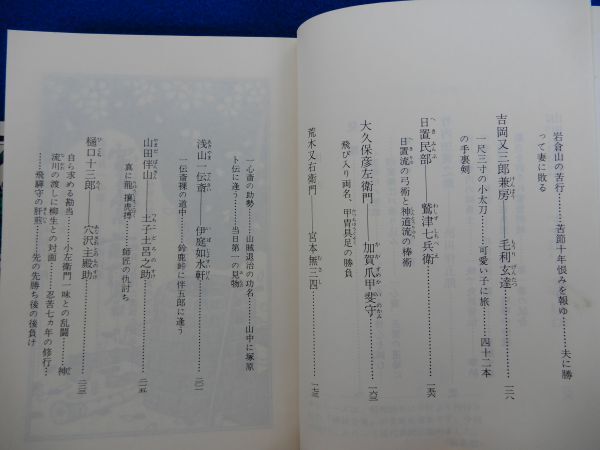 岩倉山の苦行……苦節十年恨みを報ゆ……夫に勝
って妻に敗る
吉岡又三郎兼房――毛利玄達……一三八
一尺三寸の小太刀……可愛い子に旅……四十二本
の手裏剣
日置民部――鷲津七兵衛……一五六
日置流の弓術と神道流の棒術
大久保彦左衛門――加賀爪甲斐守……一六三
飛び入り両名、甲冑具足の勝負
荒木又右衛門――宮本無三四……一七三
一心斎の助勢……山賊退治の功名……山中に塚原
卜伝に逢う……当日第一の見物
浅山一伝斎――伊庭如水軒……二〇一
一伝斎裸の道中……鈴鹿峠に伴五郎に逢う
山田伴山――土子土呂之助……二一五
真に龍攘虎搏……師匠の仇討ち
樋口十三郎――穴沢主殿助……二三三
自ら求める勘当……小左衛門一味との乱闘……神
流川の渡しに柳生との対面……忍苦七カ年の修行
……飛騨守の肝煎……先の先勝ち後の後負け